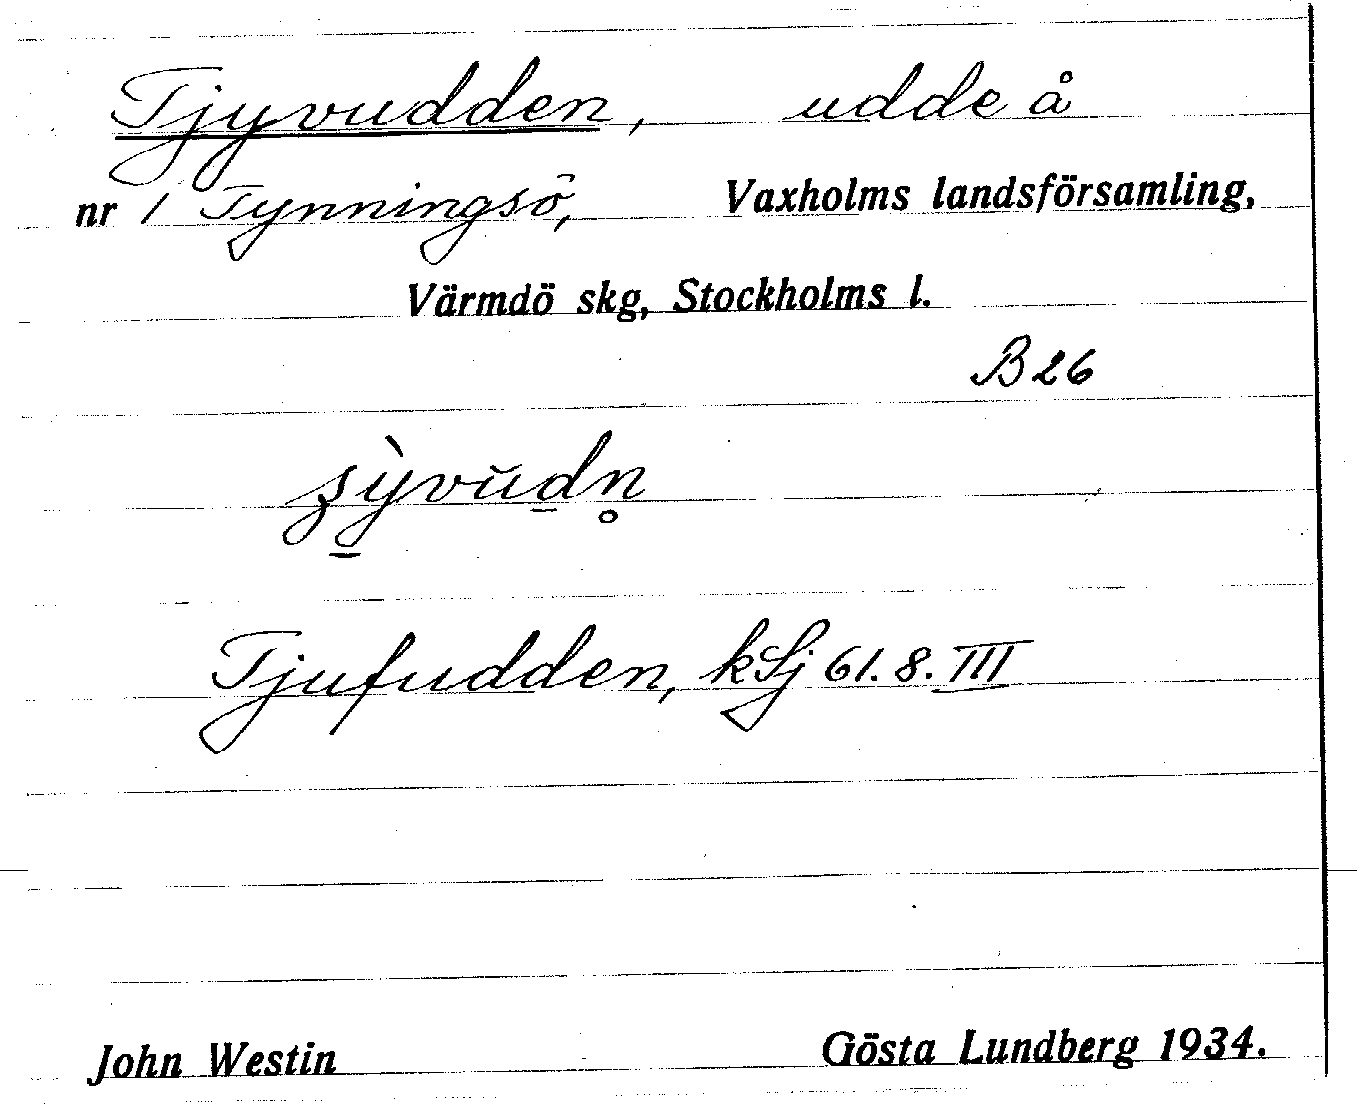 Tjyvudden, udde å
nr 1 Tynningsö, Vaxholms landsförsamling,
Värmdö skg, Stockholms l.
B 26
Tjufudden, kSj 61.8.III
John Westin Gösta Lundberg 1934.